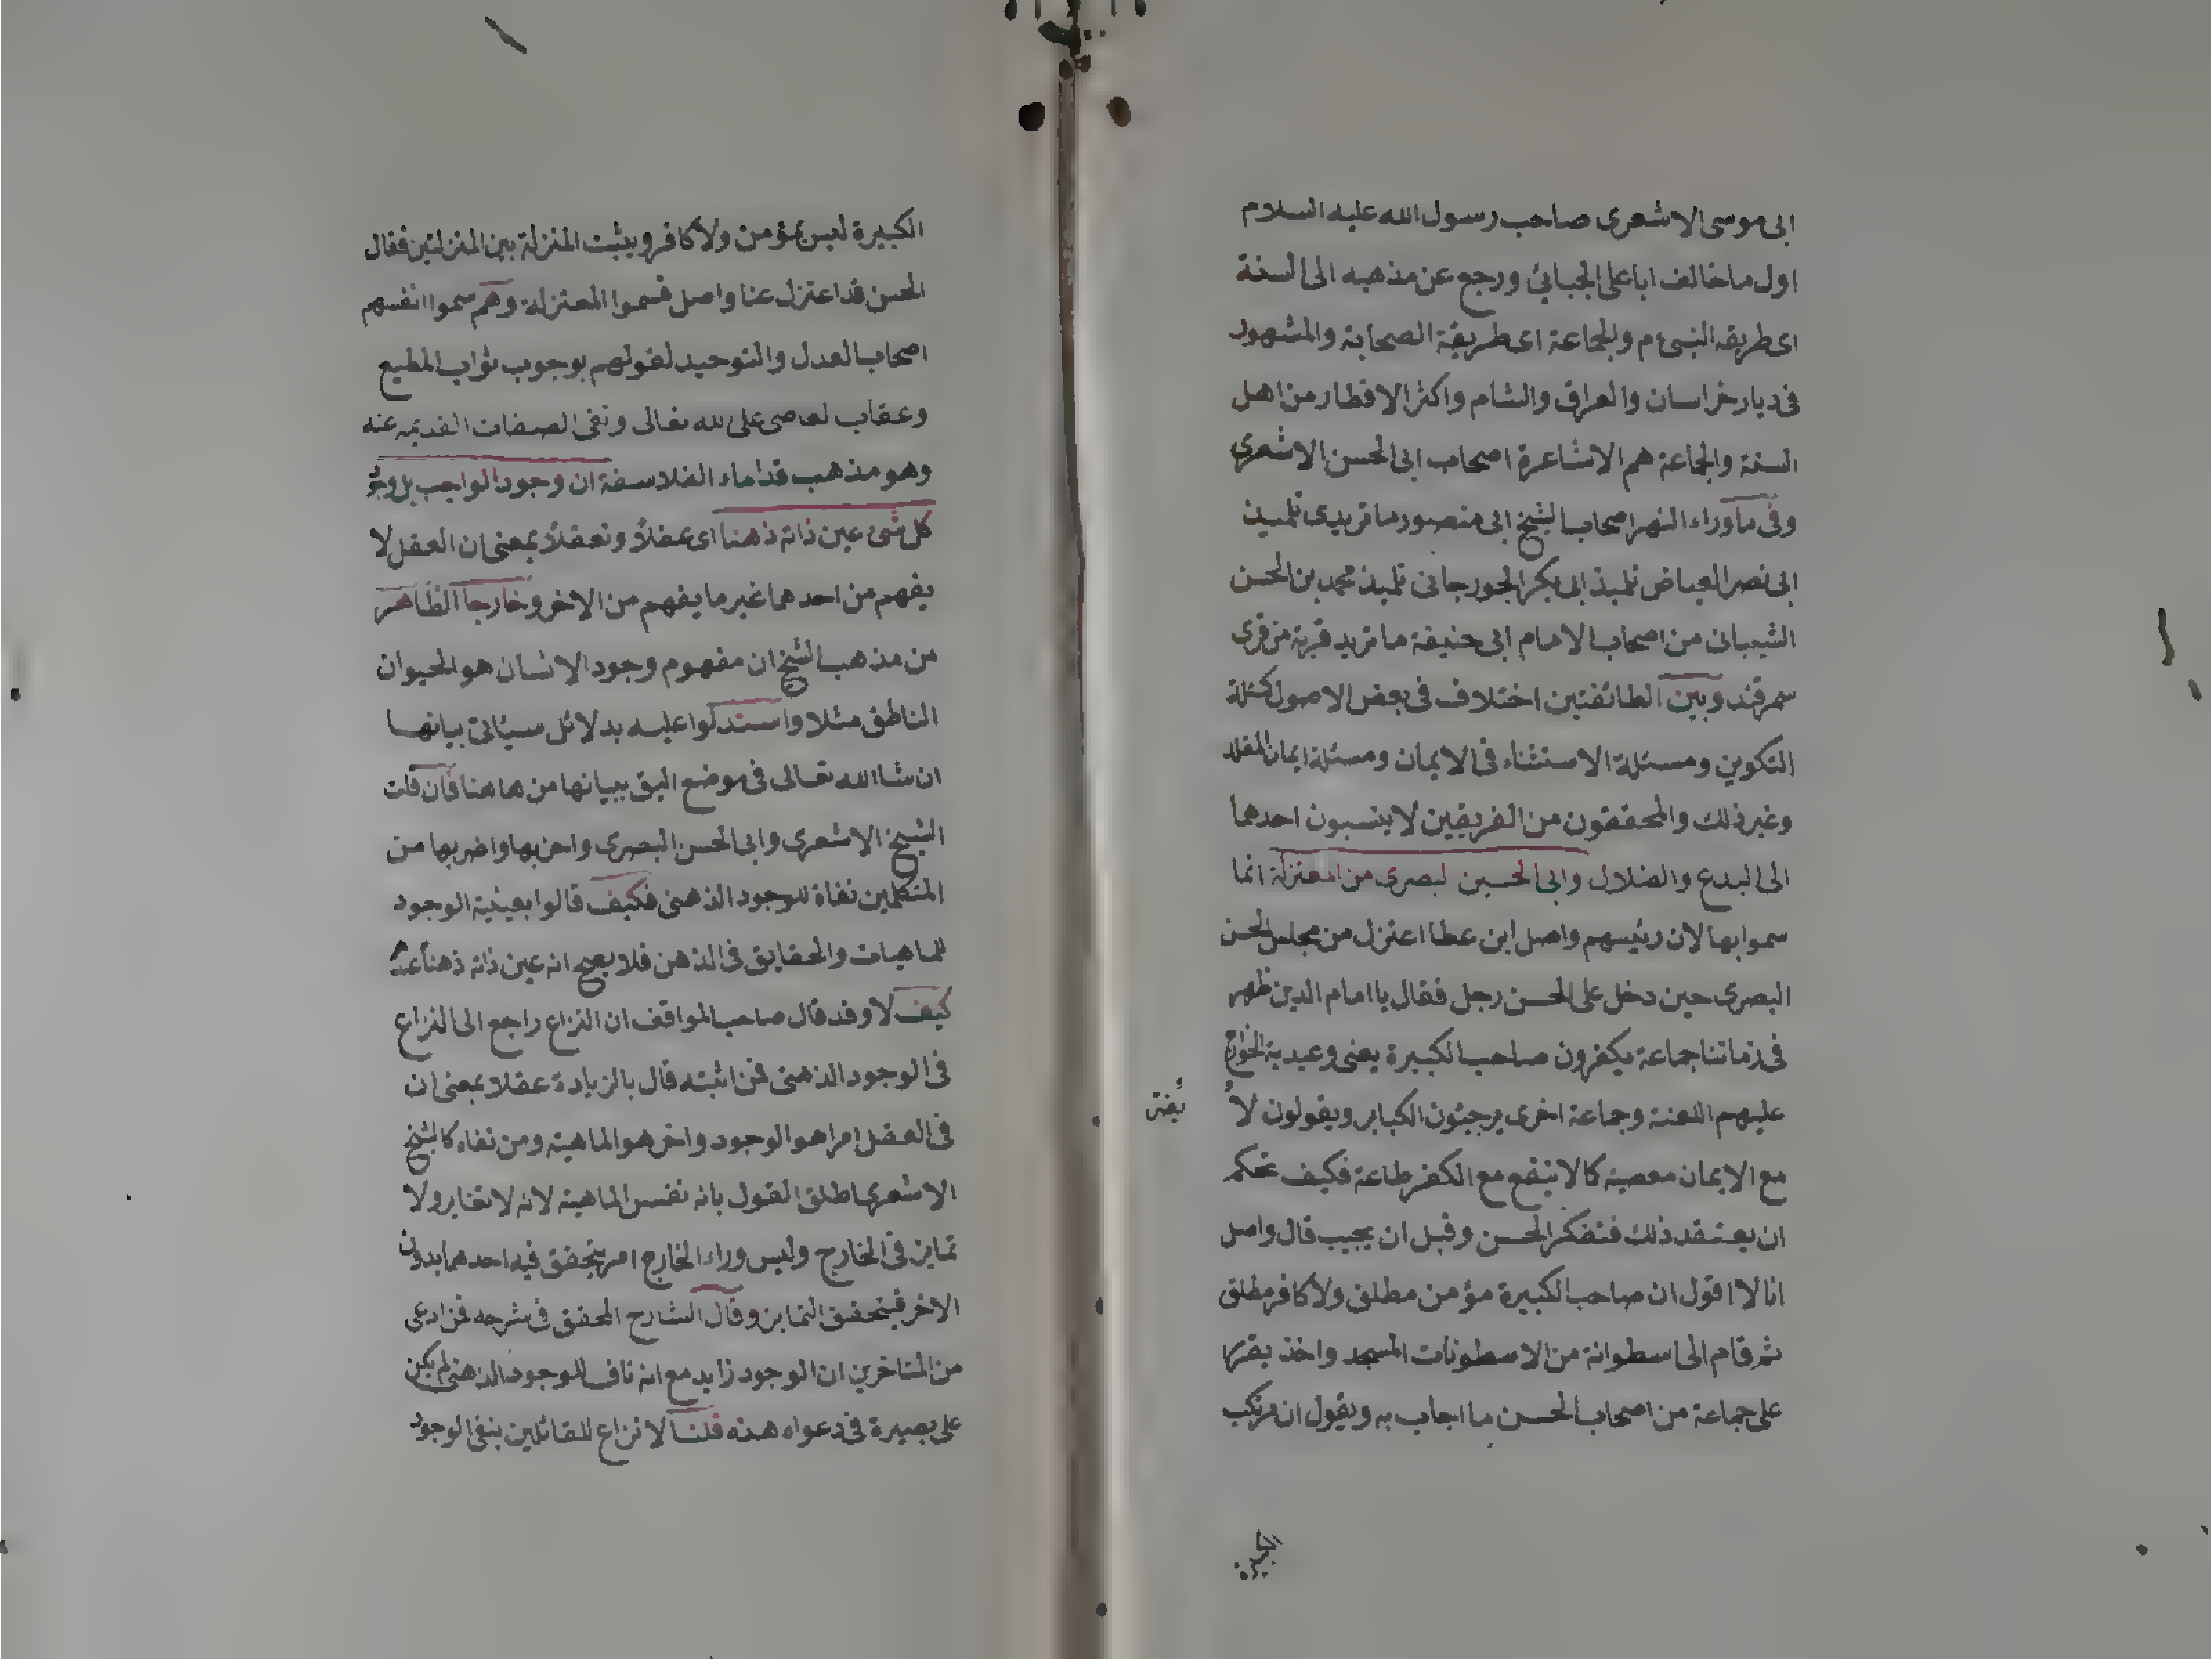 ابى موسى الاشعرى صاحب رسول الله عليه السلام
اول ما خالف ابا على الجبائى ورجع عن مذهبه الى السنة
اى طريقه النبى ءم والجماعة اى طريقة الصحابة والمشهور
فى ديار خراسان والعراق والشام واكثر الاقطار من اهل
السنة والجماعة هم الاشاعرة اصحاب ابى الحسن الاشعرى
وفى ما وراء النهر اصحاب الشيخ ابى منصور ماتريدى تلميذ
ابى نصر العياض تلميذ ابى بكر الجورجانى تلميذ محمد بن الحسن
الشيبانى من اصحاب الامام ابى حنيفة ماتريد قرية من قرى
سمرقند وبين الطائفتين اختلاف فى بعض الاصول كمسئلة
التكوين ومسئلة الاستثناء فى الايمان ومسئلة ايمان المقلد
وغير ذلك والمحققون من الفريقين لا ينسبون احدهما
الى البدع والضلال وابى الحسين لبصرى من المعتزلة انما
سموا بها لان رئيسهم واصل ابن عطا اعتزل من مجلس الحسن
البصرى حين دخل على الحسن رجل فقال يا امام الدين ظهر
فى زماننا جماعة يكفرون صاحب الكبيرة يعنى وعيدية الخوارج
عليهم اللعنة وجماعة اخرى يرجئون الكباير ويقولون لا
مع الايمان معصية كما لا ينفع مع الكفر طاعة فكيف تحكم
ان يعتقد ذلك فتفكر الحسن وقبل ان يجيب قال واصل
انا لا اقول ان صاحب الكبيرة مؤمن مطلق ولا كافر مطلق
ثم قام الى اسطوانة من الاسطونات المسجد واخذ يقرر
على جماعة من اصحاب الحسن ما اجاب به ويقول ان مرتكب
الكبيرة
الكبيرة ليس بمؤمن ولا كافر ويثبت المنزلة بين المنزلتين فقال
الحسن قد اعتزل عنا واصل فسموا المعتزلة وهم سموا انفسهم
اصحاب العدل والتوحيد لقولهم بوجوب ثواب المطيع
وعقاب لعاصى على لله تعالى ونفى الصفات القديمه عنه
وهو مذهب قداماء الفلاسفة ان وجود الواجب بل وجود
كل شئ عين ذاته ذهنا اى عقلاً وتعقلاً بمعنى ان العقل لا
يفهم من احدهما غير ما يفهم من الاخر وخارجا الظاهر
من مذهب الشيخ ان مفهوم وجود الانسان هو الحيوان
الناطق مثلا واستدلوا عليه بدلائل سيئاتى بيانها
ان شا الله تعالى فى موضع اليق ببيانها من هاهنا فان قلت
الشيخ الاشعرى وابى الحسن البصرى واحزبها واضربها من
المتكلمين نفاة للوجود الذهنى فكيف قالوا بعينية الوجود
للماهيات والحقايق فى الذهن فلا يصح انه عين ذاته ذهنا عندهم
كيف لا وقد قال صاحب المواقف ان النزاع راجع الى النزاع
فى الوجود الذهنى فمن اثبته قال بالزيادة عقلا بمعنى ان
فى العقل امرا هو الوجود واخر هو الماهية ومن نفاه كالشيخ
الاشعرى اطلق القول بانه نفس الماهية لانه لا تغاير ولا
تمايز فى الخارج وليس وراء الخارج امر يتحقق فيه احدهما بدون
الاخر فيتحقق التمايز وقال الشارح المحقق فى شرحه فمن ادعى
من المتاخرين ان الوجود زايد مع انه ناف للوجود الذهنى لم يكن
على بصيرة فى دعواه هذه قلنا لا نزاع للقائلين بنفى الوجود